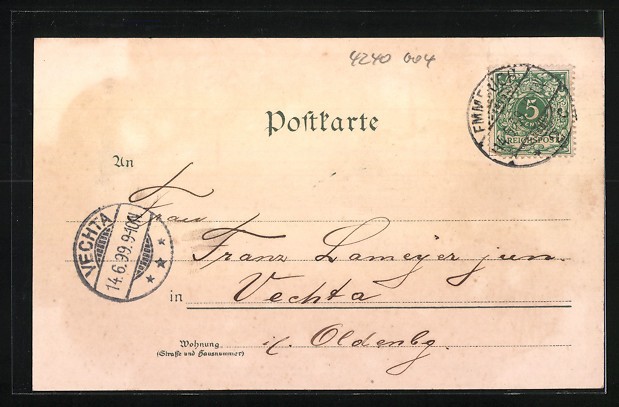 4240 004
EMMERICH
5
REICHSPOST
Postkarte
An
Frau
Franz Lameyer jun.
VECHTA
14.6.99.9-10N
in Vechta
i/. Oldenbg.
Wohnung
(Straße und Hausnummer)